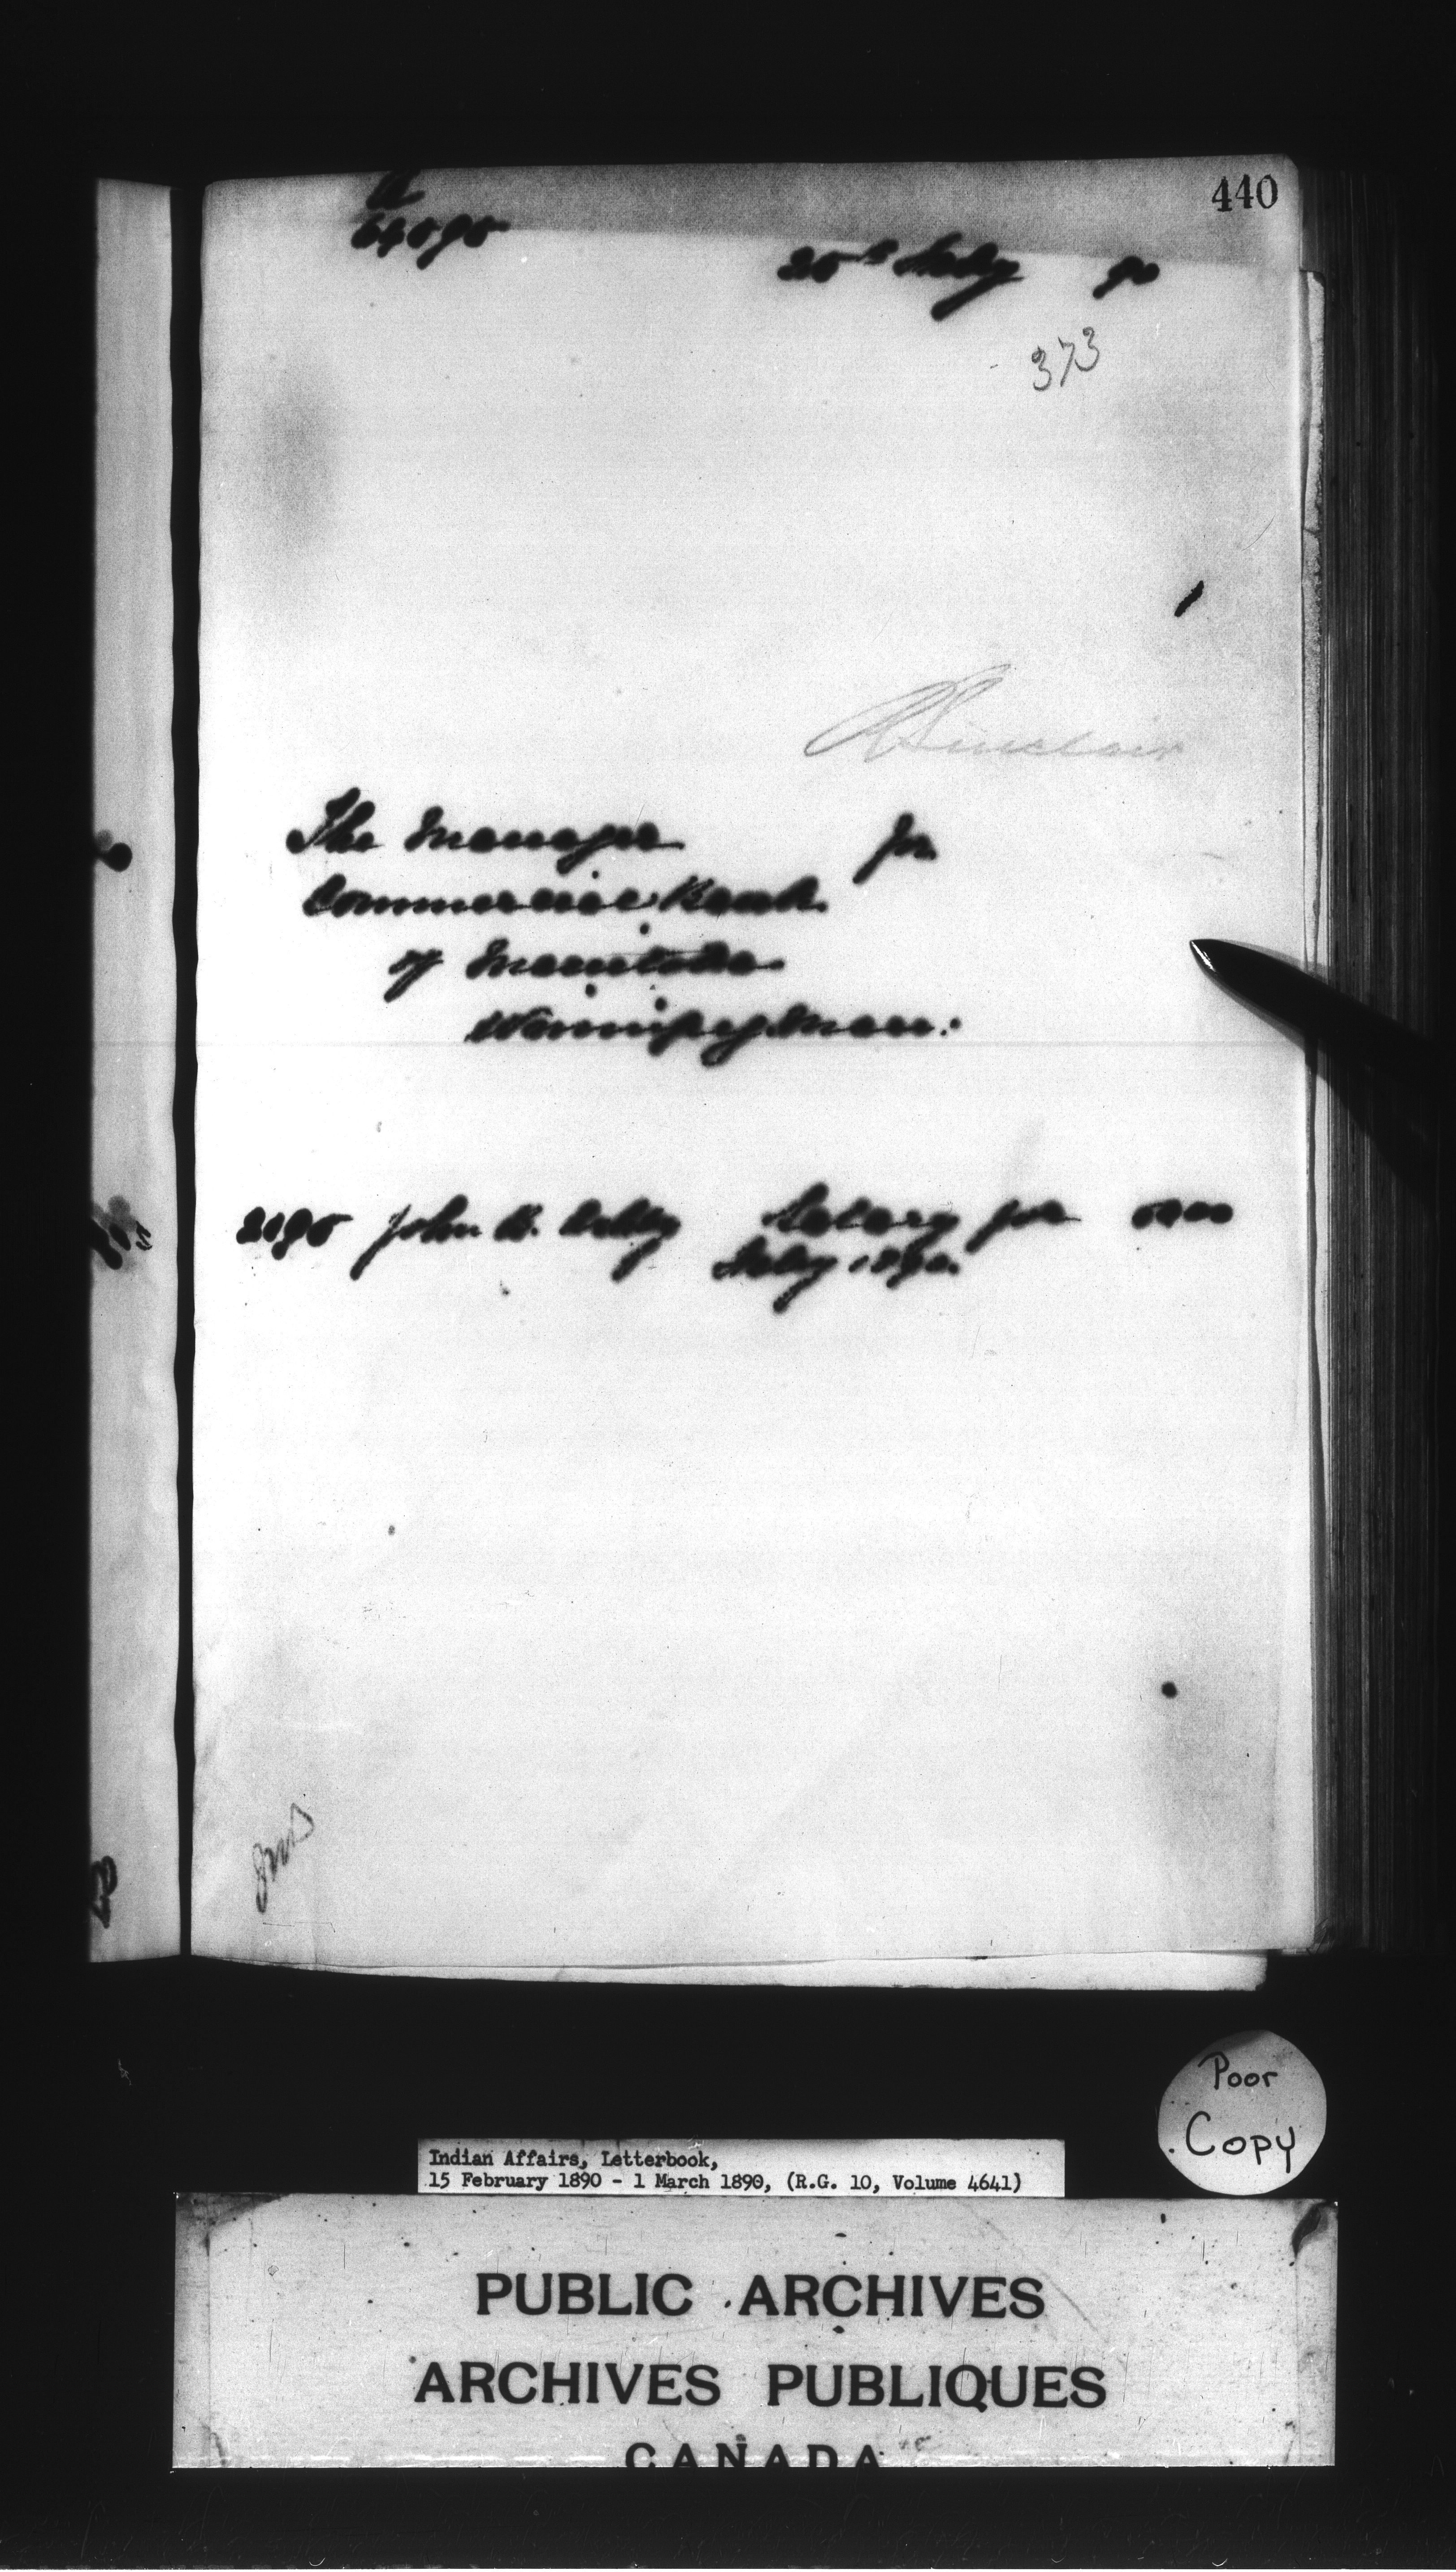 440
25th Feby 90
373
R Sinclair
The Manager for
Commercial Bank
of Manitoba
Winnipeg Man:
2195 John B. Salary for
Feby 1890.
Poor
Copy
Indian Affairs, Letterbook,
15 February 1890 - 1 March 1890, (R.G. 10, Volume 4641)
PUBLIC ARCHIVES
ARCHIVES PUBLIQUES
CANADA